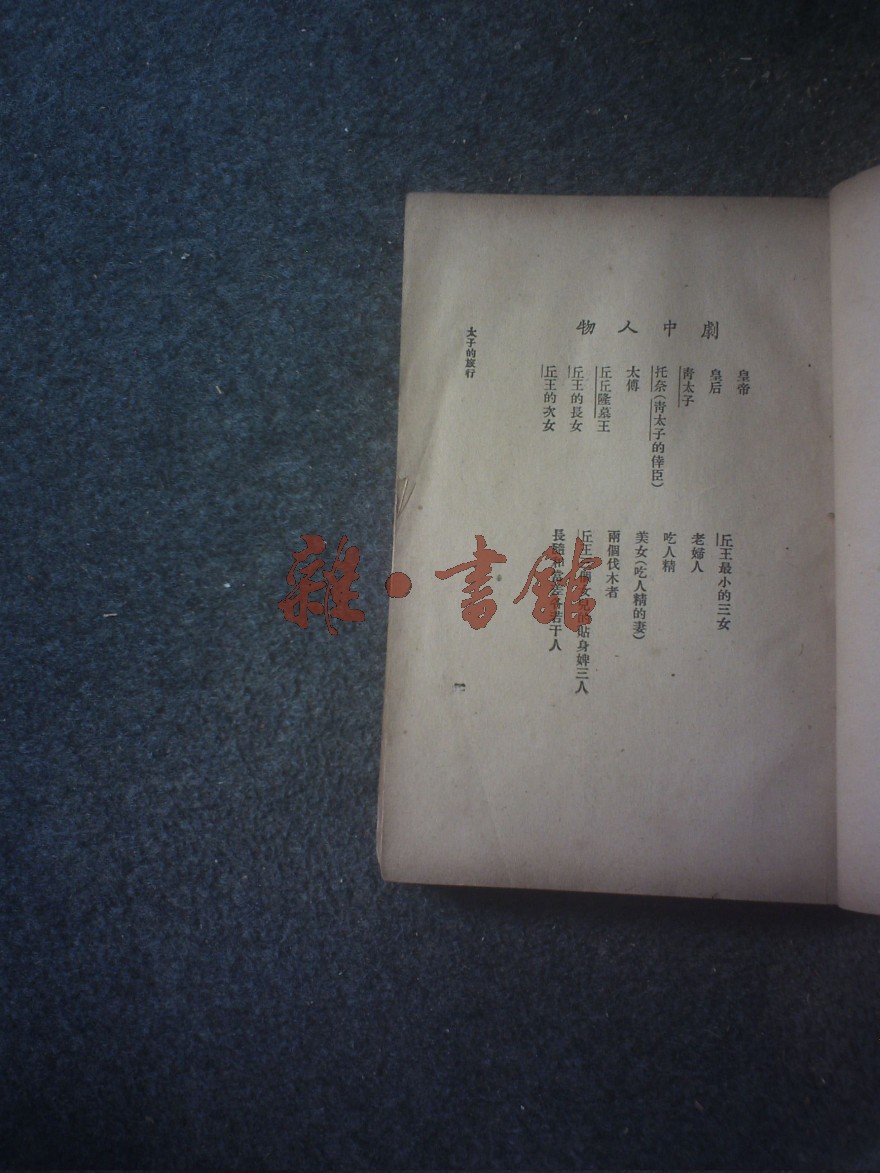 劇中人物
皇帝
皇后
青太子
托奈（青太子的倖臣）
太傅
丘丘隆墓王
丘王的長女
丘王的次女
丘王最小的三女
老婦人
吃人精
美女（吃人精的妻）
兩個伐木者
丘王 貼身婢三人
長隨 若干人
太子的旅行
雜·書館